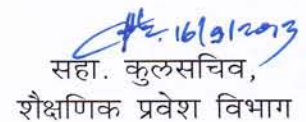 16/9/2013
सहा. कुलसचिव,
शैक्षणिक प्रवेश विभाग